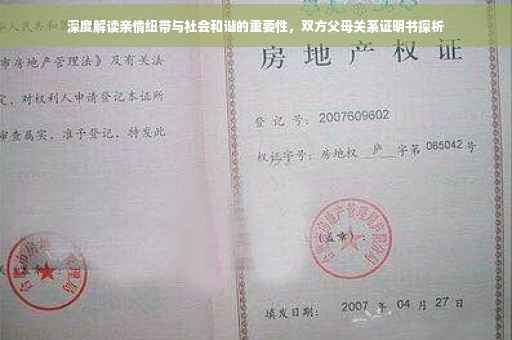 深度解读亲情纽带与社会和谐的重要性，双方父母关系证明书探析
华人民共和国
市房地产管理法》及有关法
定，对权利人申请登记本证所
审查属实，准予登记，特发此
房地产权证
登 记 号： 2007609602
权证字号：房地权 庐 字第 085042 号
(盖章)：
填发日期： 2007 年 04 月 27 日